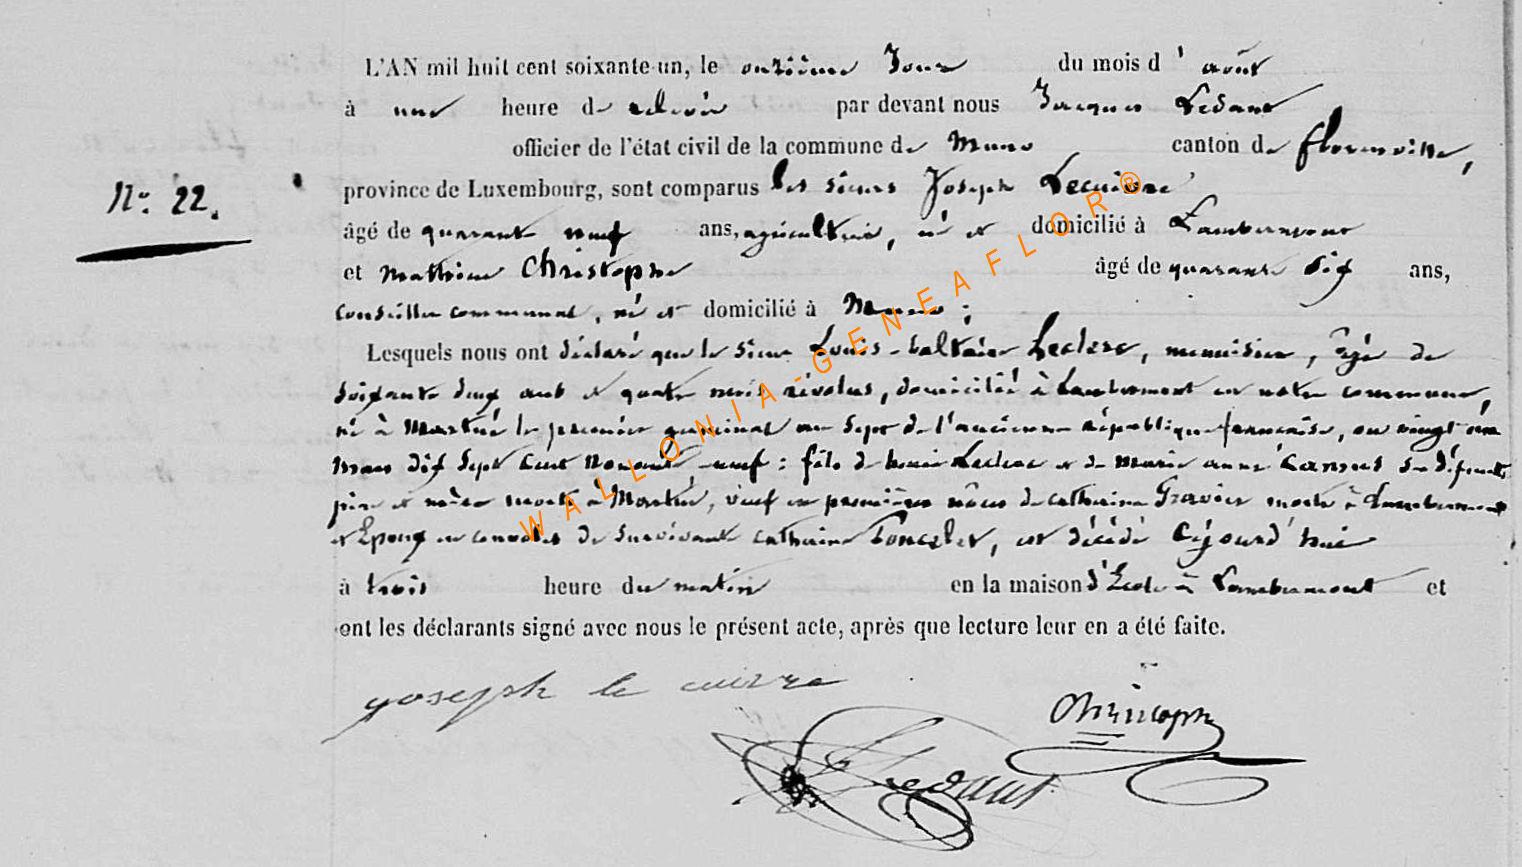 L'AN mil huit cent soixante-un, le onzième Jour du mois d' août
à une heure de relevée par devant nous Jacques Ledant
officier de l'état civil de la commune de Muno canton de florenville,
Nº. 22.
province de Luxembourg, sont comparus les sieurs Joseph Lecuivre
âgé de quarante neuf ans, agriculteur, né et domicilié à Lambermont
et Mathieu Christophe âgé de quarante six ans,
conseiller communal, né et domicilié à Muno ;
Lesquels nous ont déclaré que le sieur Louis-Baltazar Leclerc, menuisier, âgé de
soixante deux ans et quatre mois révolus, domicilié à Lambermont en notre commune,
né à le premier germinal an sept de l'ancienne république française, ou vingt un
mars dix sept cent nonante-neuf : fils de Leclerc et de Marie anne défunts
père et mère morts à, veuf en premières nôces de catherine Gravier morte à Lambermont
et Epoux en convoles de survivante catherine Poncelet, est décédé Cejourd'hui
à trois heure du matin en la maison d'Ecole à Lambermont et
ont les déclarants signé avec nous le présent acte, après que lecture leur en a été faite.
joseph le cuivre
Christophe
Ledant
WALLONIA-GENEAFLOR®